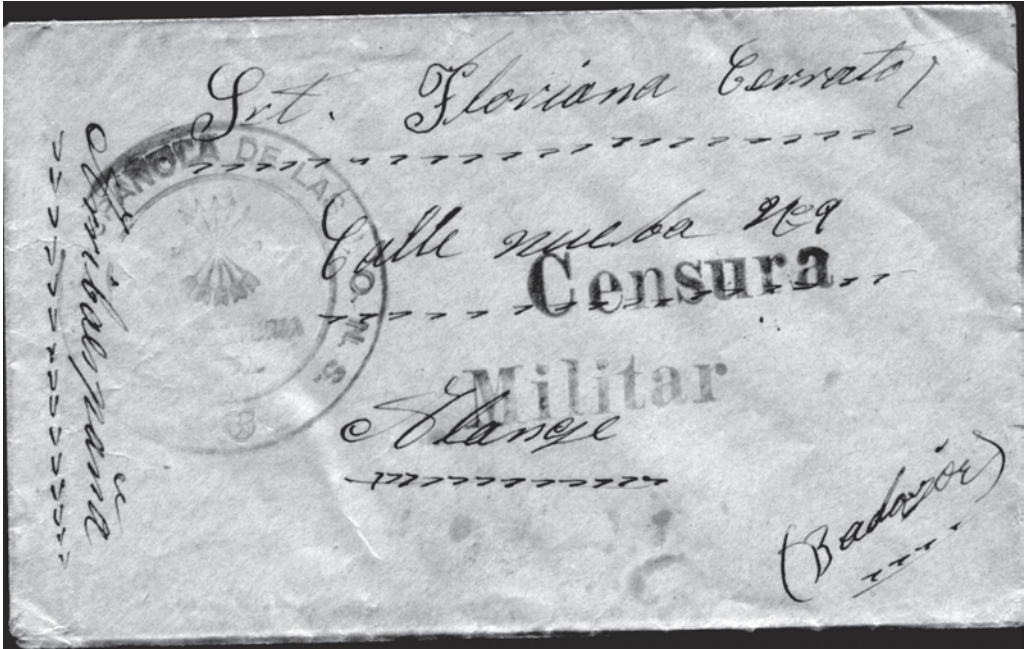 Srt. Floriana Cerrato,
Calle nueba nº 9
Censura
Militar
Alange
(Badajoz)
¡¡Arriba España!!
AÑOLA DE LAS
O. N. S.